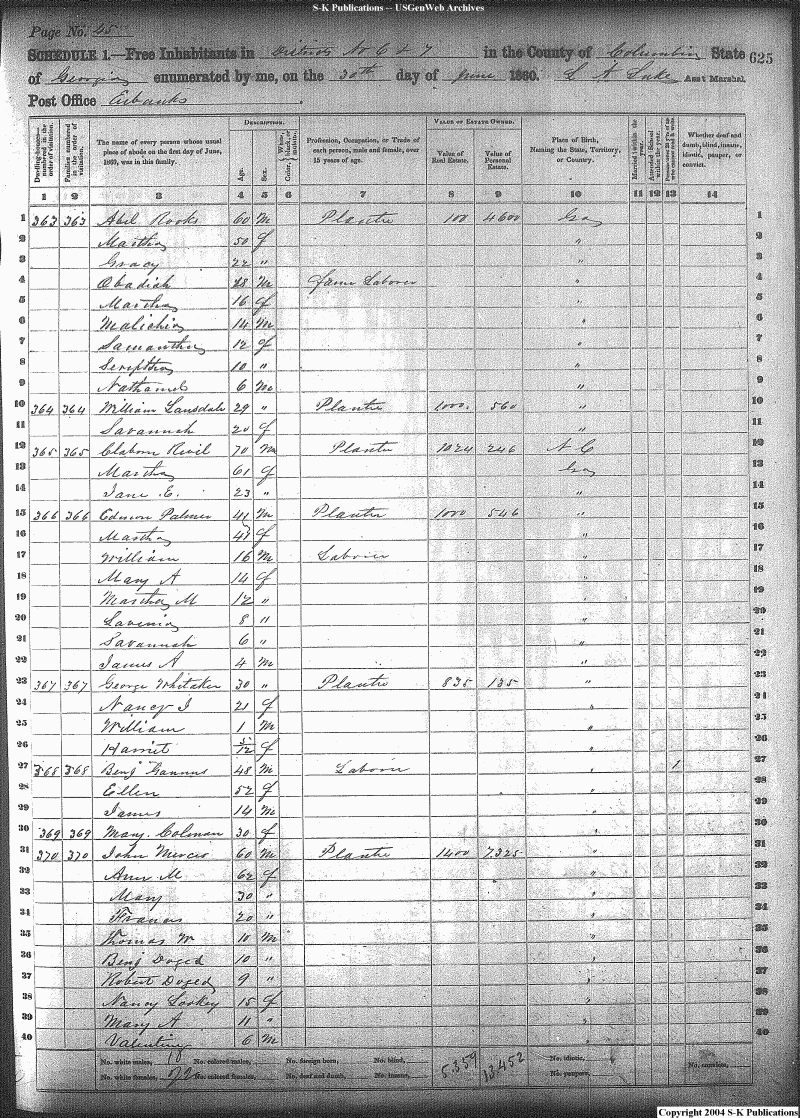 S-K Publications -- USGenWeb Archives
Page No. 45
SCHEDULE 1.—Free Inhabitants in Districts No 6 & 7 in the County of Columbia State 625
of Georgia enumerated by me, on the 30th day of June 1860. L A Luke Ass't Marshal.
Post Office Eubanks
Dwelling-houses—numbered in the order of visitation.
Families numbered in the order of visitation.
The name of every person whose usual place of abode on the first day of June, 1860, was in this family.
DESCRIPTION.
Age.
Sex.
Color, White, black, or mulatto.
Profession, Occupation, or Trade of each person, male and female, over 15 years of age.
VALUE OF ESTATE OWNED.
Value of Real Estate.
Value of Personal Estate.
Place of Birth, Naming the State, Territory, or Country.
Married within the year.
Attended School within the year.
Whether deaf and dumb, blind, insane, idiotic, pauper, or convict.
1 2 3 4 5 6 7 8 9 10 11 12 13 14
1 363 363 Abil Rooks 60 M Plantre 100 4600 Ga 1
2 Martha 50 f " 2
3 Gracy 22 " " 3
4 Obadiah 18 M farm Laborer " 4
5 Martha 16 f " 5
6 Malichia 14 M " 6
7 Samantha 12 f " 7
8 10 " " 8
9 Nathaniel 6 M " 9
10 364 364 William Lansdale 29 " Plantre 1000. 560 " 10
11 Savannah 20 f " 11
12 365 365 Claborn 70 M Plantre 1024 246 N C 12
13 Martha 61 f Ga 13
14 Jane E. 23 " " 14
15 366 366 Edmon Palmer 41 M Plantre 1000 546 " 15
16 Martha 41 f " 16
17 William 16 M Laborer " 17
18 Mary A 14 f " 18
19 Martha M 12 " " 19
20 Lavenia 8 " " 20
21 Savannah 6 " " 21
22 James A 4 M " 22
23 367 367 George Whitaker 30 " Plantre 835 135 " 23
24 Nancy J 21 f " 24
25 William 1 M " 25
26 Harriet 5/12 f " 26
27 368 368 Benj Gannus 48 M Laborer " 1 27
28 Ellen 52 f " 28
29 James 14 M " 29
30 369 369 Mary. Colman 30 f " 30
31 370 370 John Mercer 60 M Plantre 1400 7325 " 31
32 Ann M 62 f " 32
33 Mary 30 " " 33
34 Frances 20 " " 34
35 Thomas W 10 M " 35
36 Benj Dozed 10 " " 36
37 Robert Dozed 9 " " 37
38 Nancy Lookey 15 f " 38
39 Mary A 11 " " 39
40 Valentine 6 M " 40
No. white males, 18 No. colored males, No. foreign born, No. blind, 5.359 13.452 No. idiotic,
No. white females, 22 No. colored females, No. deaf and dumb, No. insane, No. paupers, No. convicts,
Copyright 2004 S-K Publications